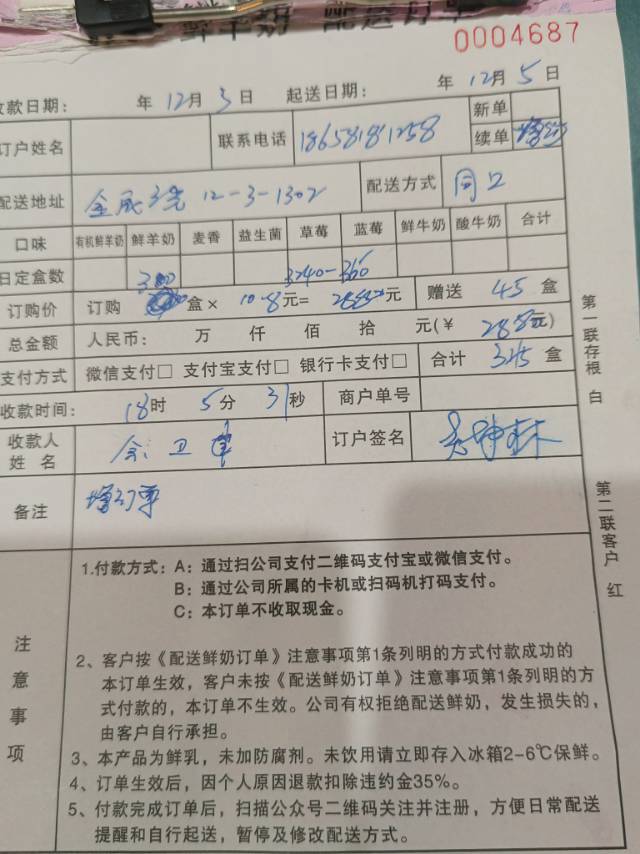 鲜羊奶 配送订单
0004687
收款日期： 年 12月 3日 起送日期： 年 12月 5日
订户姓名 联系电话 18658181258 新单
续单
配送地址 12-3-1302 配送方式
口味 有机鲜羊奶 鲜羊奶 麦香 益生菌 草莓 蓝莓 鲜牛奶 酸牛奶 合计
日定盒数 300 3240-360
订购价 订购 盒× 10.8元= 元 赠送 45 盒
总金额 人民币： 万 仟 佰 拾 元(￥ 2880元)
支付方式 微信支付□ 支付宝支付□ 银行卡支付□ 合计 345 盒
收款时间： 18时 5分 31秒 商户单号
收款人姓名 余卫 订户签名
备注 增订单
注意事项
1.付款方式：A：通过扫公司支付二维码支付宝或微信支付。
B：通过公司所属的卡机或扫码机打码支付。
C：本订单不收取现金。
2、客户按《配送鲜奶订单》注意事项第1条列明的方式付款成功的
本订单生效，客户未按《配送鲜奶订单》注意事项第1条列明的方
式付款的，本订单不生效。公司有权拒绝配送鲜奶，发生损失的，
由客户自行承担。
3、本产品为鲜乳，未加防腐剂。未饮用请立即存入冰箱2-6℃保鲜。
4、订单生效后，因个人原因退款扣除违约金35%。
5、付款完成订单后，扫描公众号二维码关注并注册，方便日常配送
提醒和自行起送，暂停及修改配送方式。
第一联存根 白
第二联客户 红